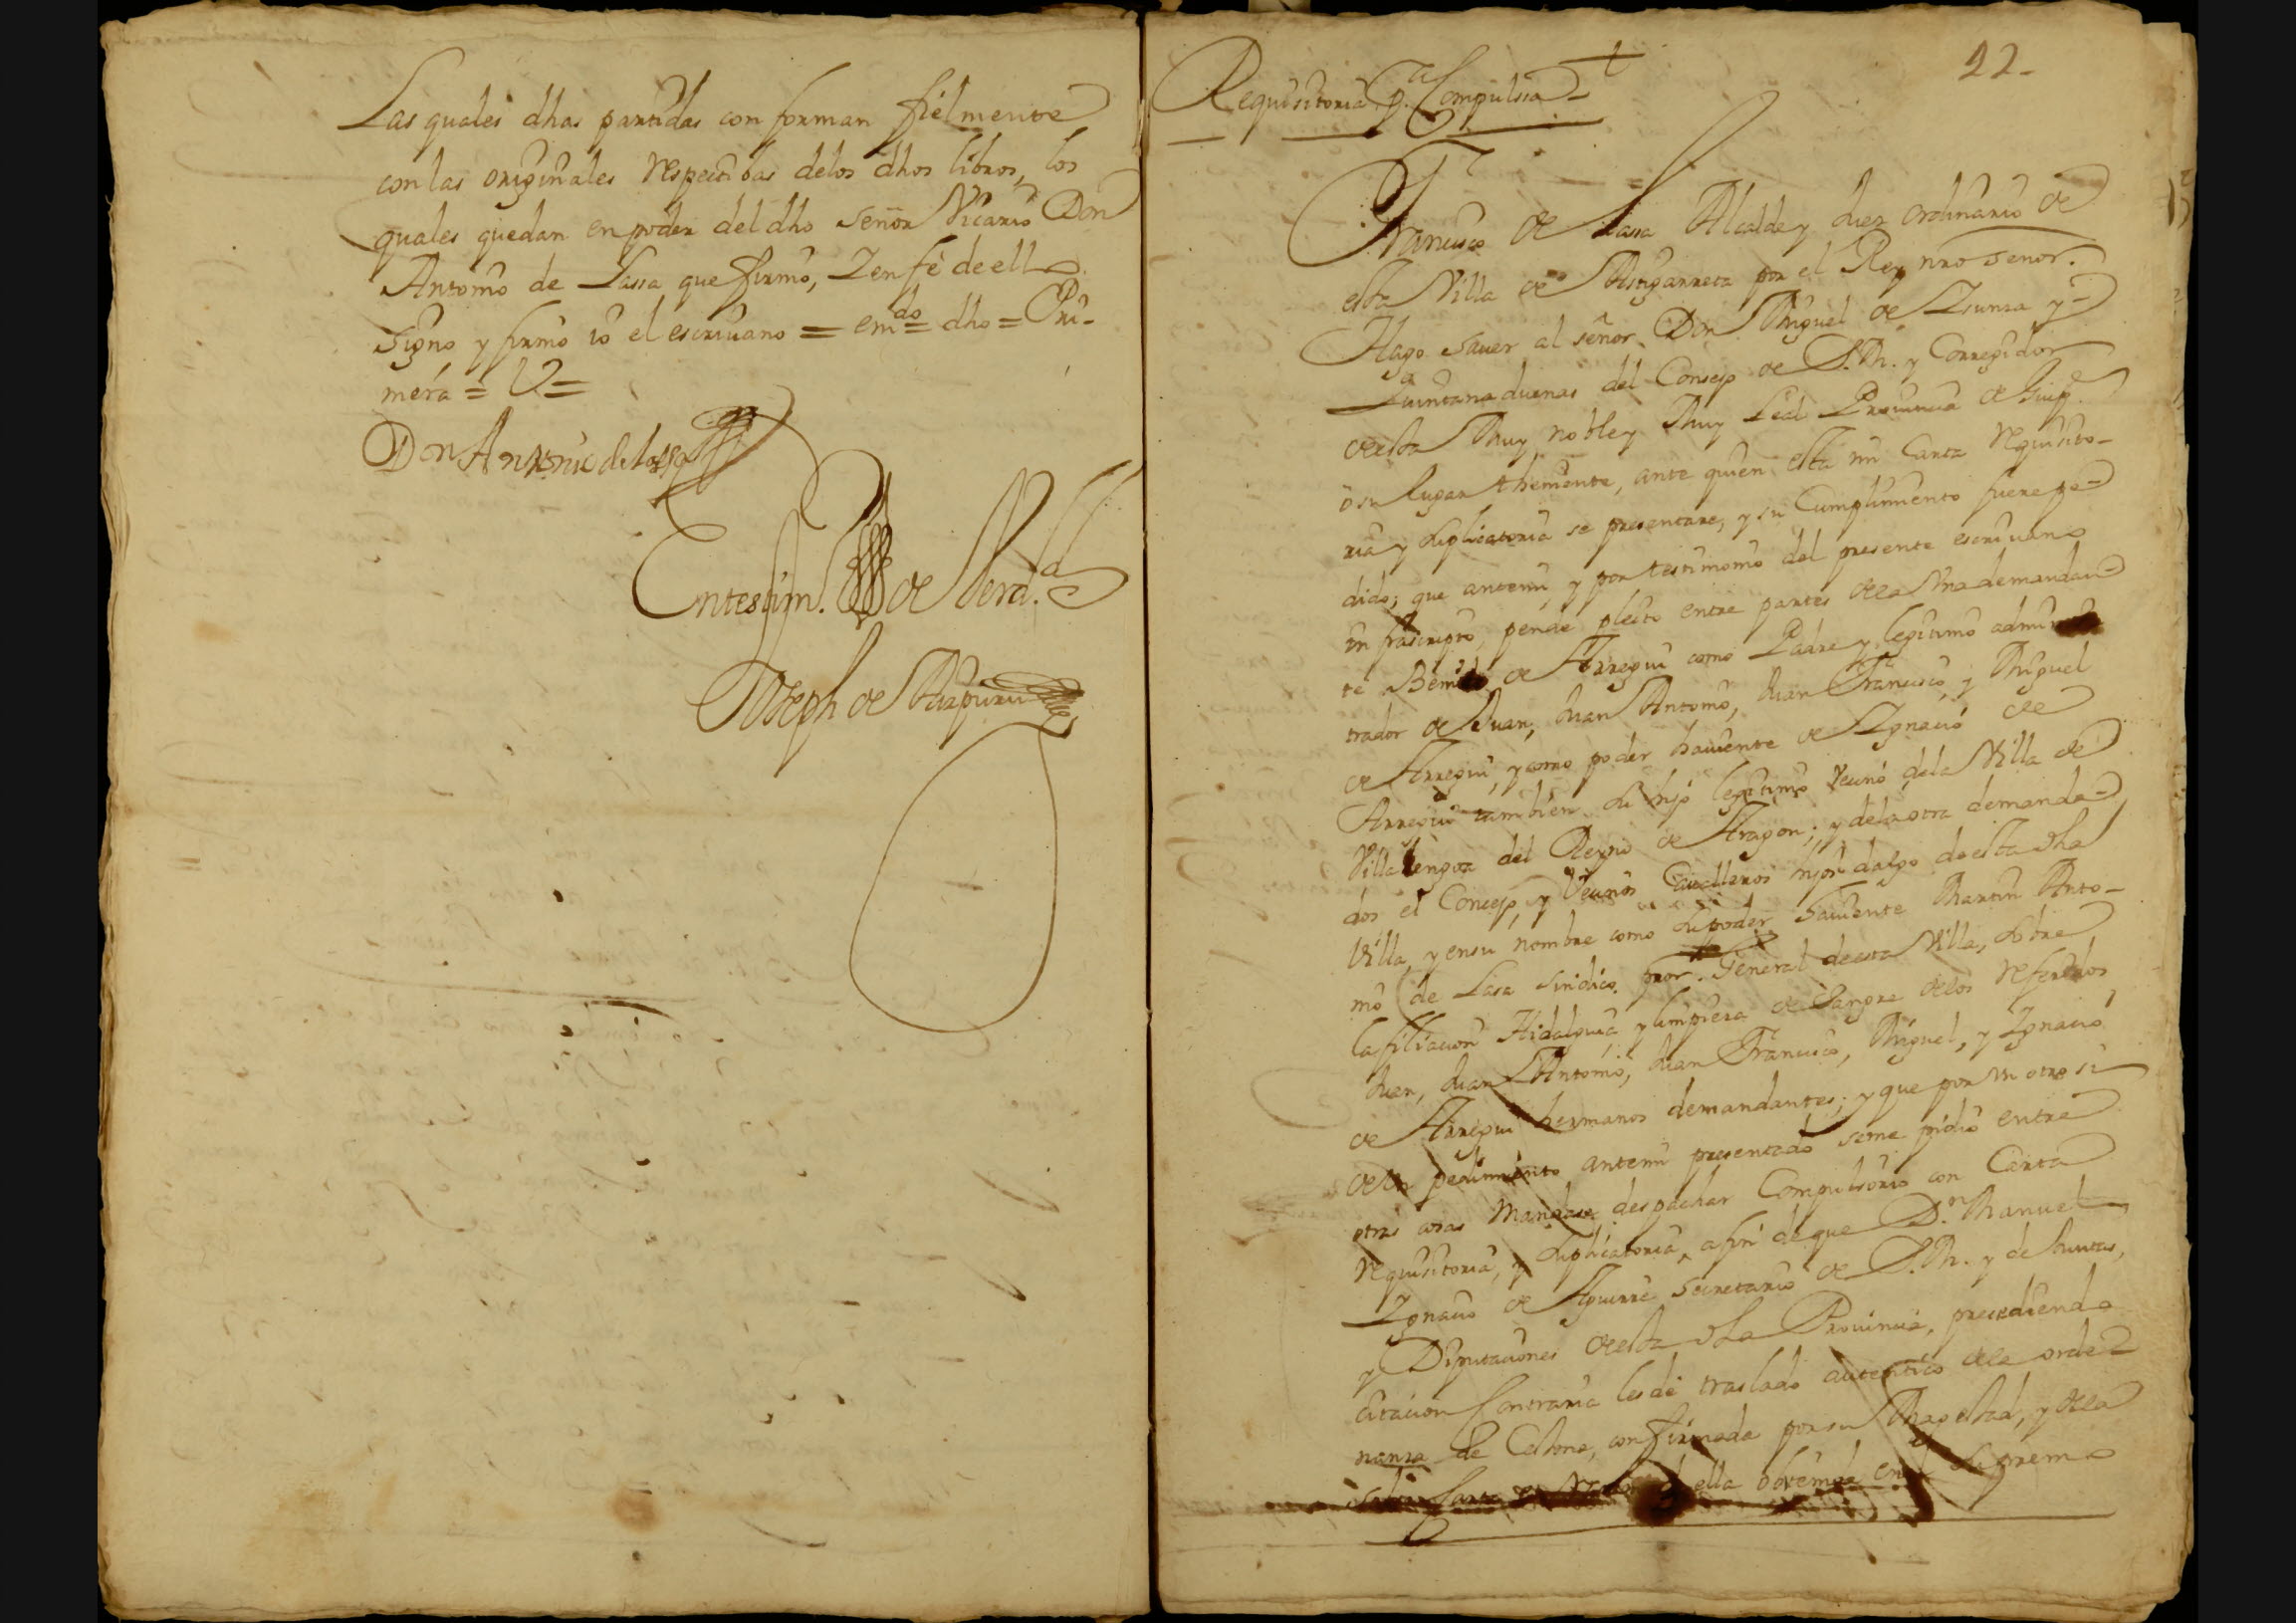 Las quales dhas partidas con forman fielmente
con las originales respectibas delos dhos libros, los
quales quedan en poder del dho señor Vicario Don
Antonio de Lassa que firmó, Y en fé de ello
signo y firmo io el escriuano = emdo = dho = Pri-
mera = V =
Don Antonio de Lassa
En testim. de Verd.d
Joseph de Aurpuru
22-
Requisitoria p.a Compulsa -
Francisco de Lassa Alcalde y Juez ordinario de
esta Villa de Astigarreta por el Rey nro señor.
Hago sauer al señor Don Miguel de Ysunza y
Quintanaduenas del Consejo de S.M. y Corregidor
de esta Muy noble y Muy Leal Prouincia de Guip.
ò su lugar theniente, ante quien esta mi Carta requisito-
ria y suplicatoria se presentare, y su Cumplimiento fuere pe-
dido; que antemi y por testimonio del presente escriuano
infrascripto, pende pleito entre partes dela Vna demandan-
te Benito de Arregui como Padre y legitimo adminis
trador de Juan, Juan Antonio, Juan Francisco, y Miguel
de Arregui, y como poder hauiente de Ygnacio de
Arregui tambien su hijo legitimo Vecino dela Villa de
Villaluengoa del Reyno de Aragon; y dela otra demanda-
dos el Concejo, y Vecinos Caualleros hijosdalgo de esta dha
Villa, y en su nombre como su poder hauiente Martin Anto-
nio de Lasa sindico pror. General de esta Villa, sobre
la filiacion Hidalguia, y limpieza de Sangre delos referidos
Juan, Juan Antonio, Juan Francisco, Miguel, y Ygnacio
de Arregui hermanos demandantes; y que por vn otro si
de Vn pedimiento antemi presentado seme pidio entre
otras cosas Mandase despachar Compulsorio con Carta
requisitoria, y suplicatoria, a fin de que D.n Manuel
Ygnacio de Aguirre Secretario de S.M. y de Juntas,
y Diputaciones de esta dha Prouincia, precediendo
citacion Contraria les dé traslado autentico dela orde-
nanza de Cestona, confirmada por su Magestad, y dela
ella obtenida en el supremo